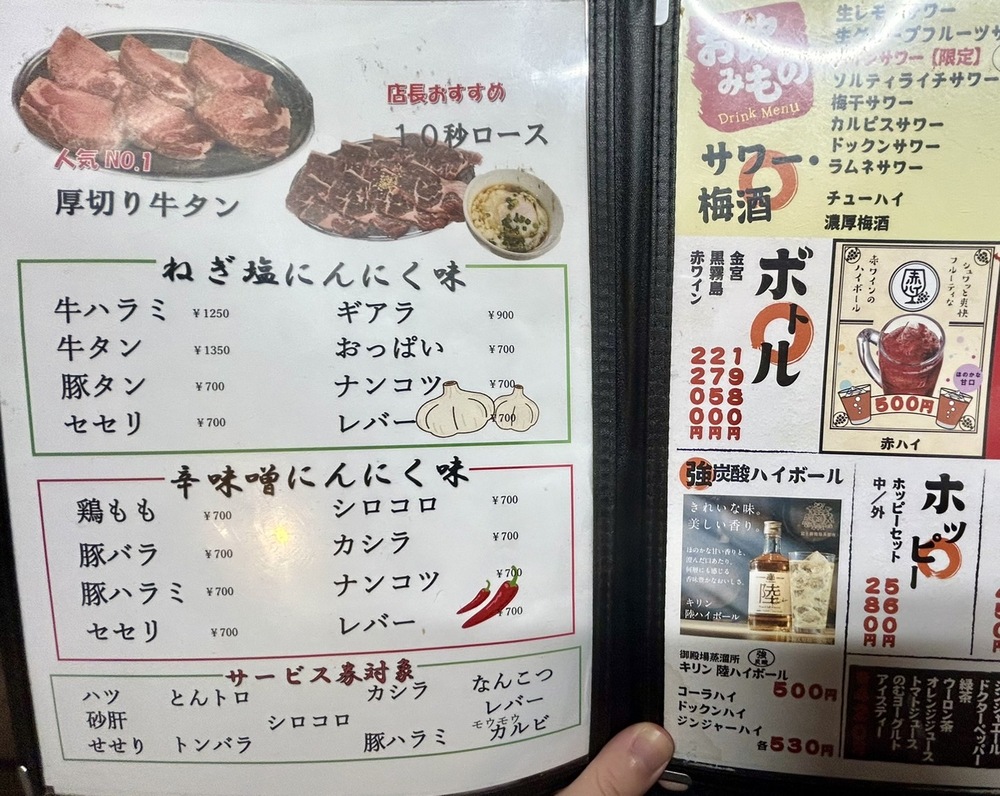 人気NO.1
厚切り牛タン
店長おすすめ
10秒ロース
ねぎ塩にんにく味
牛ハラミ ¥1250
牛タン ¥1350
豚タン ¥700
セセリ ¥700
ギアラ ¥900
おっぱい ¥700
ナンコツ ¥700
レバー ¥700
辛味噌にんにく味
鶏もも ¥700
豚バラ ¥700
豚ハラミ ¥700
セセリ ¥700
シロコロ ¥700
カシラ ¥700
ナンコツ ¥700
レバー ¥700
サービス券対象
ハツ とんトロ カシラ なんこつ
砂肝 シロコロ レバー
せせり トンバラ 豚ハラミ モウモウカルビ
お飲みもの
Drink Menu
サワー・梅酒
生レモンサワー
生グレープフルーツサ
サワー【限定】
ソルティライチサワー
梅干サワー
カルピスサワー
ドックンサワー
ラムネサワー
チューハイ
濃厚梅酒
ボトル
金宮 1980円
黒霧島 2750円
赤ワイン 2200円
シュワッと爽快
フルーティな
赤ワインの
ハイボール
赤ハイ
ほのかな
甘口
500円
赤ハイ
強炭酸ハイボール
きれいな味。
美しい香り。
ほのかな甘い香りと、
澄んだ口あたり。
何層にも感じる
香味豊かなおいしさ。
キリン
陸ハイボール
陸
御殿場蒸溜所
キリン 陸ハイボール
強炭酸
500円
コーラハイ
ドックンハイ
ジンジャーハイ
各530円
ホッピー
ホッピーセット 560円
中/外 280円
ドクターペッパー
緑茶
ウーロン茶
オレンジジュース
トマトジュース
のむヨーグルト
アイスティー